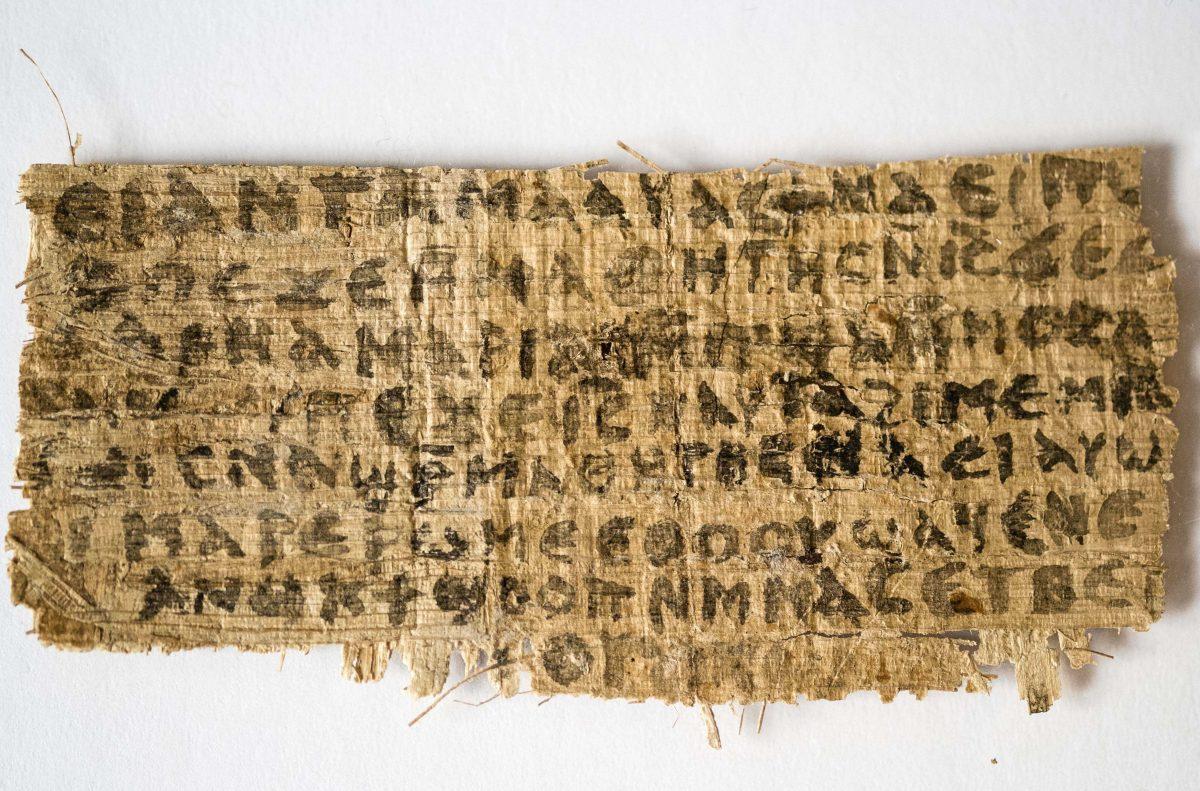 ⲉⲓ ⲁⲛ ⲧⲁⲙⲁⲁⲩ ⲁⲥϯ ⲛⲁⲉⲓ ⲡ
ⲡⲉϫⲉ ⲙⲙⲁⲑⲏⲧⲏⲥ ⲛ̄ⲓ̄ⲥ̄ ϫⲉ ⲥ
ⲁⲣⲛⲁ ⲙⲁⲣⲓⲁⲙ ⲙ̄ⲡϣⲁ ⲙ̄ⲙⲟⲥ ⲁ
ⲡⲉϫⲉ ⲓ̄ⲥ̄ ⲛⲁⲩ ⲧⲁϩⲓⲙⲉ ⲙⲛ̄
ⲥⲛⲁϣⲣ̄ⲙⲁⲑⲏⲧⲏⲥ ⲛⲁⲉⲓ ⲁⲩⲱ
ⲙⲁⲣⲉⲣⲱⲙⲉ ⲉⲑⲟⲟⲩ ϣⲁϥⲉ ⲛⲉ
ⲁⲛⲟⲕ ϯϣⲟⲟⲡ ⲛ̄ⲙⲙⲁⲥ ⲉⲧⲃⲉ